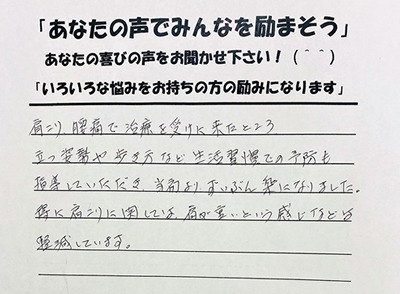 「あなたの声でみんなを励まそう」
あなたの喜びの声をお聞かせ下さい！（＾＾）
「いろいろな悩みをお持ちの方の励みになります」
肩こり、腰痛で治療を受けに来たところ
立つ姿勢や歩き方など生活習慣での予防も
指導していただき、当初よりずいぶん楽になりました。
特に肩こりに関しては、肩が重いという感じなどは
軽減しています。